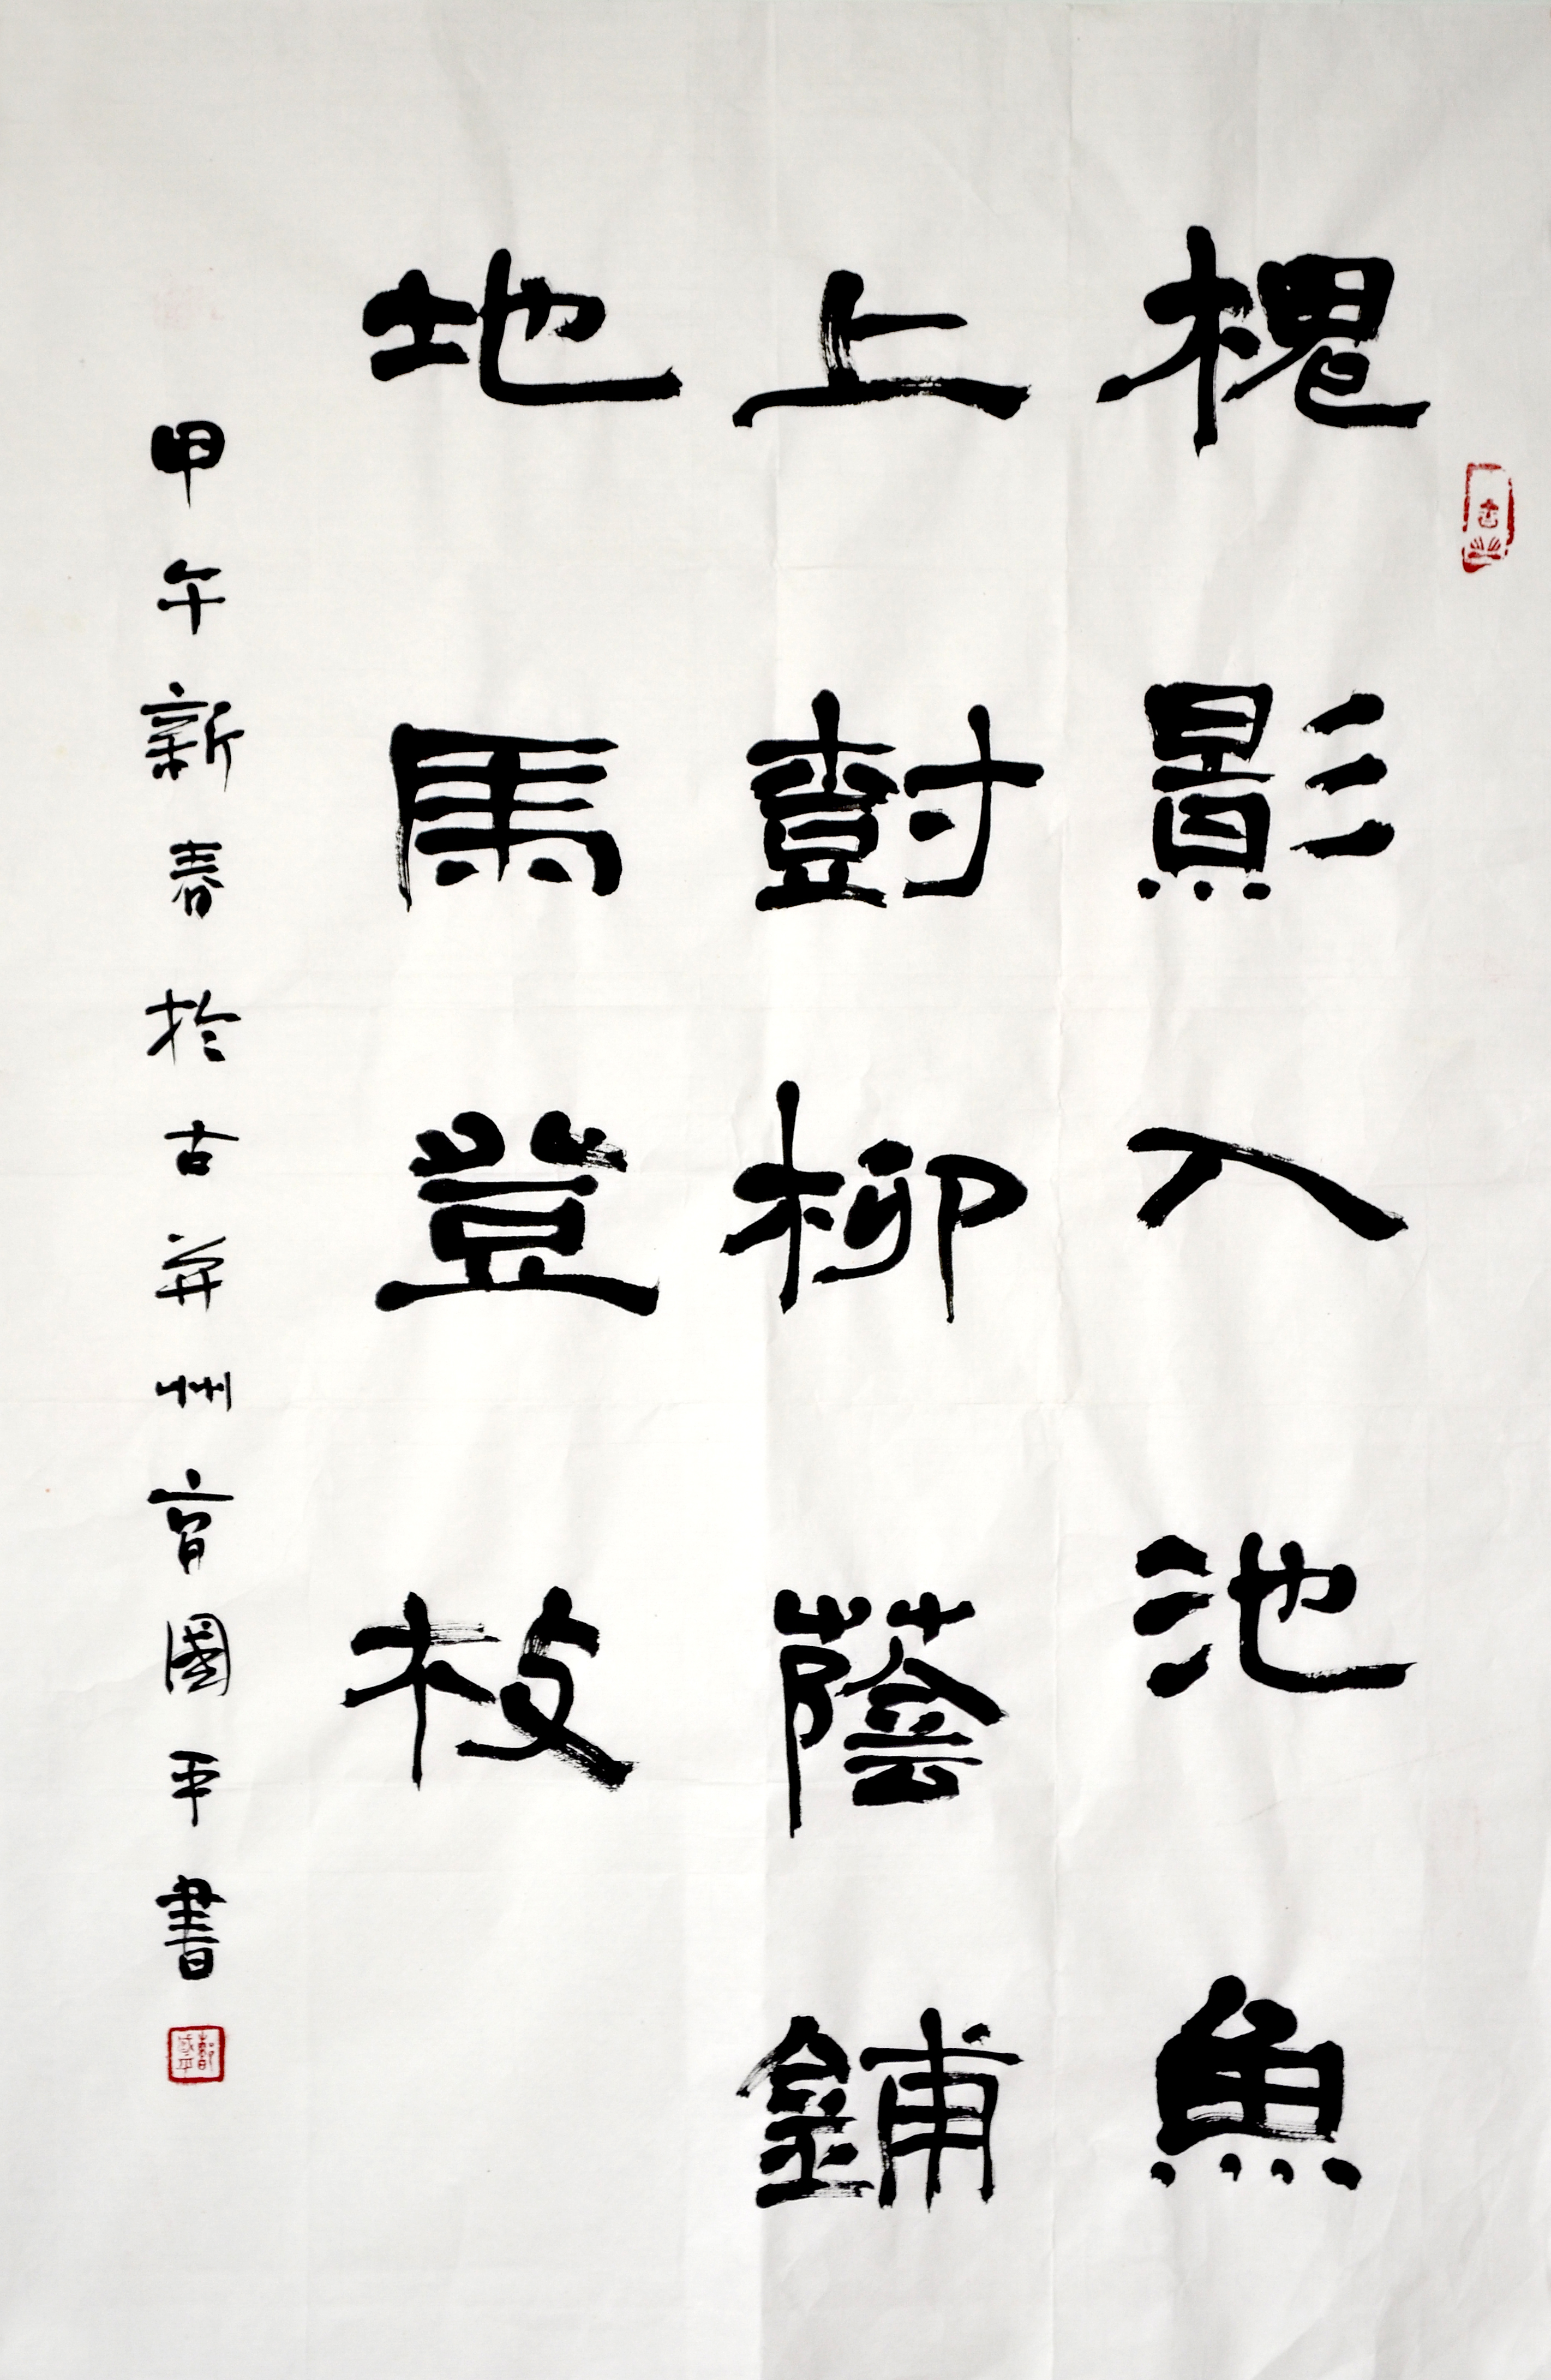 槐影入池魚
上樹柳蔭鋪
地馬登枝
甲午新春於古并州育國平書